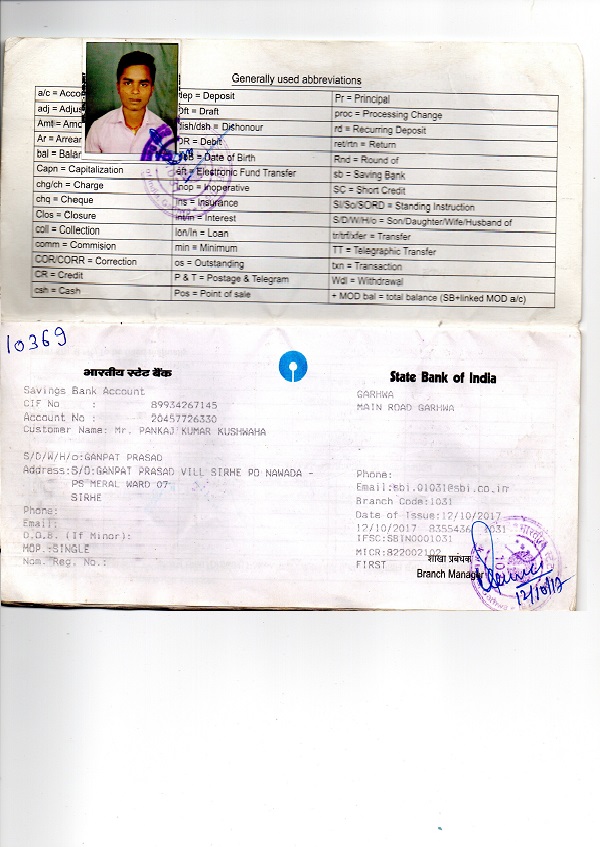 Generally used abbreviations
a/c = Acco
adj = Adjus
Amt = Amo
Ar = Arrear
bal = Balan
Capn = Capitalization
chg/ch = Charge
chq = Cheque
Clos = Closure
coll = Collection
comm = Commision
COR/CORR = Correction
CR = Credit
csh = Cash
dep = Deposit
Dft = Draft
dish/dsh = Dishonour
DR = Debit
DOB = Date of Birth
eft = Electronic Fund Transfer
inop = Inoperative
ins = Insurance
int/in = Interest
lon/ln = Loan
min = Minimum
os = Outstanding
P & T = Postage & Telegram
Pos = Point of sale
Pr = Principal
proc = Processing Change
rd = Recurring Deposit
ret/rtn = Return
Rnd = Round of
sb = Saving Bank
SC = Short Credit
SI/So/SORD = Standing Instruction
S/D/W/H/o = Son/Daughter/Wife/Husband of
tr/trf/xfer = Transfer
TT = Telegraphic Transfer
txn = Transaction
Wdl = Withdrawal
+ MOD bal = total balance (SB+linked MOD a/c)
10369
भारतीय स्टेट बैंक
Savings Bank Account
CIF No : 89934267145
Account No : 20457726330
Customer Name: Mr. PANKAJ KUMAR KUSHWAHA
S/D/W/H/o:GANPAT PRASAD
Address:S/O:GANPAT PRASAD VILL SIRHE PO NAWADA -
PS MERAL WARD 07
SIRHE
Phone:
Email:
D.O.B. (If Minor):
MOP.:SINGLE
Nom. Reg. No.:
State Bank of India
GARHWA
MAIN ROAD GARHWA
Phone:
Email:sbi.01031@sbi.co.in
Branch Code:1031
Date of Issue:12/10/2017
12/10/2017 8355436 1031
IFSC:SBIN0001031
MICR:822002102
शाखा प्रबंधक
FIRST
Branch Manager
12/10/17